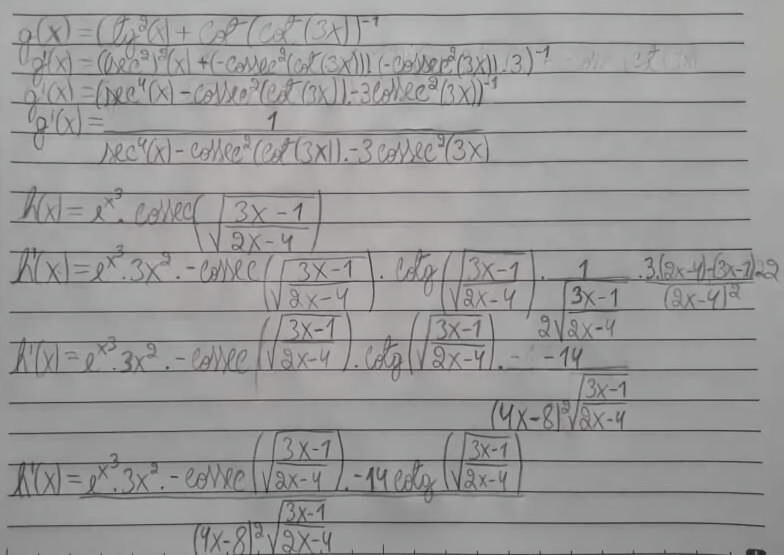 g(x) = (tg²(x) + cot(cot(3x))⁻¹
g'(x) = (sec²)²(x) + (-cossec²(cot(3x))).(-cossec²(3x)).3)⁻¹
g'(x) = (sec⁴(x) - cossec²(cot(3x)).-3cossec²(3x))⁻¹
g'(x) = 1 / sec⁴(x) - cossec²(cot(3x)).-3cossec²(3x)
h(x) = e^x³ . cossec(√(3x-1 / 2x-4))
h'(x) = e^x³ . 3x² . -cossec(√(3x-1 / 2x-4)) . cotg(√(3x-1 / 2x-4)) . 1 / 2√(3x-1 / 2x-4) . 3.(2x-4)-(3x-1).2 / (2x-4)²
h'(x) = e^x³ . 3x² . -cossec(√(3x-1 / 2x-4)) . cotg(√(3x-1 / 2x-4)) . -14 / (4x-8)²√(3x-1 / 2x-4)
h'(x) = e^x³ . 3x² . -cossec(√(3x-1 / 2x-4)) . -14 cotg(√(3x-1 / 2x-4)) / (4x-8)²√(3x-1 / 2x-4)